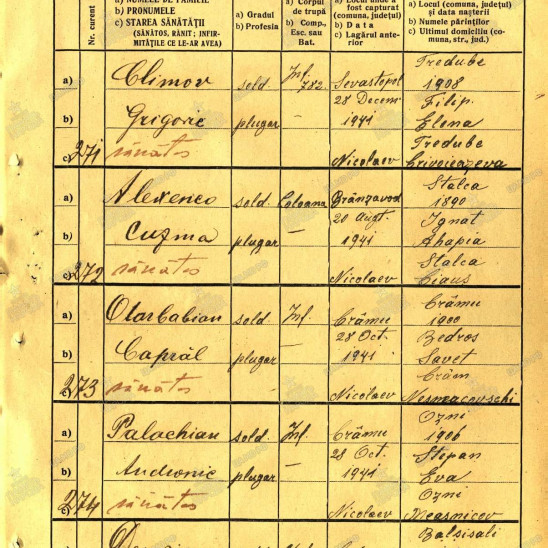 a) NUMELE DE FAMILIE
b) PRONUMELE
c) STAREA SĂNĂTĂȚII
(SĂNĂTOS, RĂNIT; INFIR-
MITĂȚILE CE LE-AR AVEA)
Nr. curent
a) Gradul
b) Profesia
a) Corpul
de trupă
b) Comp.,
Esc. sau
Bat.
a) Locul unde a
fost capturat
(comuna, județul)
b) Data
c) Lagărul ante-
rior
a) Locul (comuna, județul)
b) Data nașterii
b) Numele părinților
c) Ultimul domiciliu (co-
muna, str., jud.)
a) Climov sold. Inf. 782. Sevastopol Tredube
28 Decem 1908
b) Grigorie plugar — 1941 Filip.
Elena
c) 271 sănătos Nicolaev Tredube
a) Alexenco sold. Coloana Brânzavod Stalca
20 Augt. 1890
b) Cuzma plugar — 1941 Ignat
Ahapia
c) 272 sănătos Nicolaev Stalca
a) sold. Inf. Crâmu Crâmu
28 Oct. 1900
b) Caprăl plugar — 1941 Bedros
Savet
c) 273 sănătos Nicolaev Crâm
a) Palachian sold. Inf. Crâmu Ozni
28 Oct 1906
b) Andronic plugar — 1941 Stepan
Eva
c) 274 sănătos Nicolaev Ozni
Measnicov
a) Balsisali